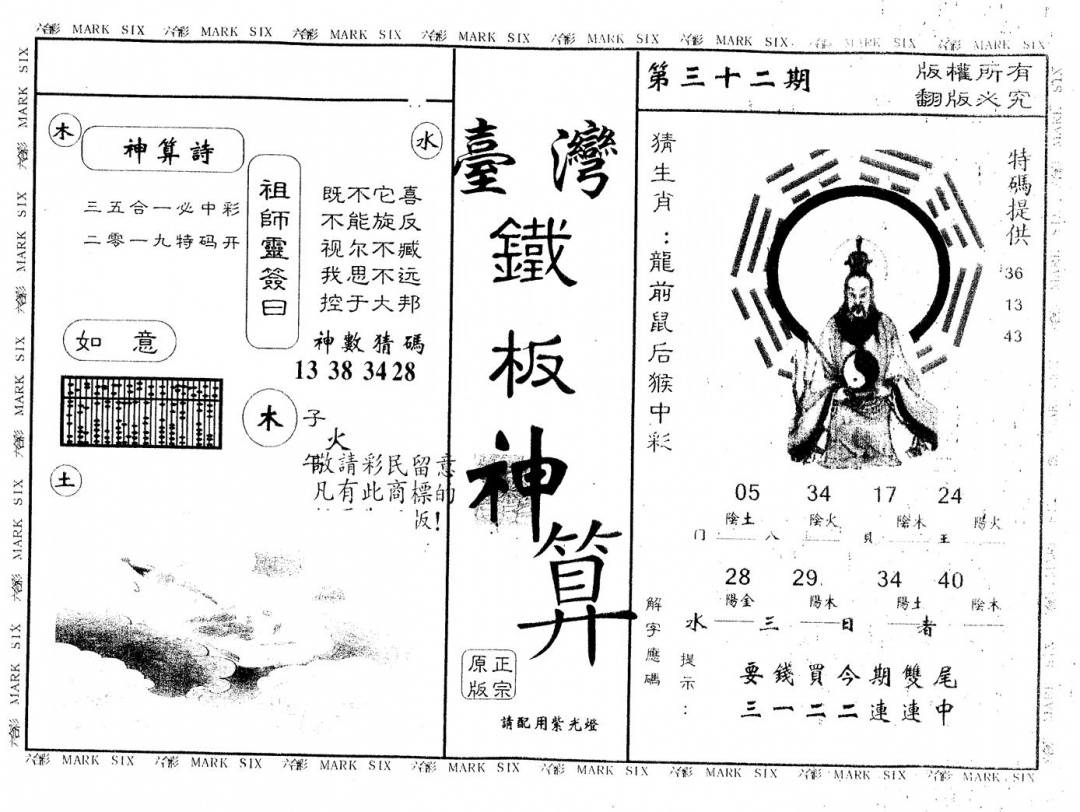 六合彩 MARK SIX 六合彩 MARK SIX 六合彩 MARK SIX 六合彩 MARK SIX 六合彩 MARK SIX 六合彩 MARK SIX 六合彩 MARK SIX 六合彩 MARK SIX
木
神算詩
水
三五合一必中彩
二零一九特码开
祖師靈簽曰
既不它喜
不能旋反
视尔不臧
我思不远
控于大邦
如意
神數猜碼
13 38 34 28
木
子
火
午
敬請彩民留意
凡有此商標的
版!
土
臺灣
鐵
板
神
算
正宗
原版
請配用紫光燈
第三十二期
版權所有
翻版必究
猜生肖:龍前鼠后猴中彩
特碼提供
36
13
43
05 34 17 24
陰土 陰火 陰木 陽火
门 八 貝 王
28 29. 34 40
陽金 陽木 陽土 陰木
水 三 日 者
解字應碼
提示:
要錢買今期雙尾
三一二二連連中
六合彩 MARK SIX 六合彩 MARK SIX 六合彩 MARK SIX 六合彩 MARK SIX 六合彩 MARK SIX 六合彩 MARK SIX 六合彩 MARK SIX 六合彩 MARK SIX